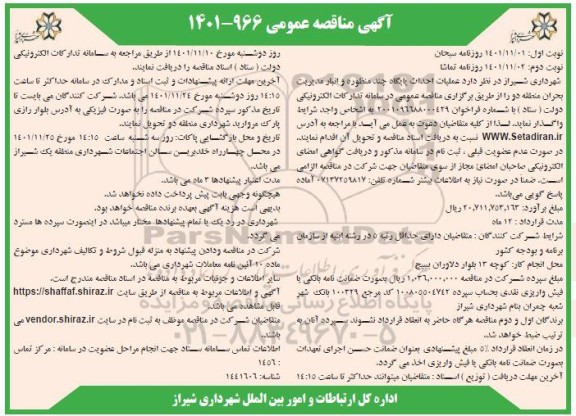 آگهی مناقصه عمومی ۹۶۶-۱۴۰۱
نوبت اول: ۱۴۰۱/۱۱/۰۱ روزنامه سبحان
نوبت دوم: ۱۴۰۱/۱۱/۰۲ روزنامه تماشا
شهرداری شیراز در نظر دارد عملیات احداث پایگاه چند منظوره و انبار مدیریت
بحران منطقه دو را از طریق برگزاری مناقصه عمومی در سامانه تدارکات الکترونیکی
دولت ( ستاد ) با شماره فراخوان ۲۰۰۱۰۹۶۶۸۸۰۰۰۴۲۹ به اشخاص واجد شرایط
واگذار نماید. لذا از کلیه متقاضیان دعوت به عمل می آید با مراجعه به آدرس
WWW.Setadiran.ir نسبت به دریافت اسناد مناقصه و تحویل آن اقدام نمایند.
در صورت عدم عضویت قبلی ، ثبت نام در سامانه مذکور و دریافت گواهی امضای
الکترونیکی صاحبان امضائ مجاز از سوی متقاضیان جهت شرکت در مناقصه الزامی
است. ضمنا در صورت نیاز به اطلاعات بیشتر شماره تلفن: ۰۷۱۳۷۲۵۶۸۱۷ آماده
پاسخ گویی می‌باشد.
مبلغ برآورد: ۲۰,۷۱۱,۷۵۳,۱۶۳ ریال
مدت قرارداد : ۱۲ ماه
شرایط شرکت کنندگان : متقاضیان دارای حداقل رتبه ۵ در رشته ابنیه از سازمان
برنامه و بودجه کشور
محل انجام کار: کوچه ۱۳ بلوار دلاوران بسیج
مبلغ سپرده شرکت در مناقصه ۱,۰۳۶,۰۰۰,۰۰۰ ریال بصورت ضمانت نامه بانکی یا
فیش واریزی نقدی بحساب سپرده ۱۰۰۸۵۵۰۴۷۴۲ کد مرجع ۱۰۰۳۲۹ بانک شهر
شعبه چمران بنام شهرداری شیراز
برندگان اول و دوم مناقصه هرگاه حاضر به انعقاد قرارداد نشوند سپرده آنان به
ترتیب ضبط خواهد شد.
در زمان انعقاد قرارداد ۵% مبلغ پیشنهادی بعنوان ضمانت حسن اجرای تعهدات
بصورت ضمانت نامه بانکی یا فیش واریزی اخذ می گردد.
آخرین مهلت دریافت ( توزیع ) اسناد : متقاضیان میتوانند حداکثر تا ساعت ۱۴:۱۵
روز دوشنبه مورخ ۱۴۰۱/۱۱/۱۰ از طریق مراجعه به سامانه تدارکات الکترونیکی
دولت ( ستاد ) اسناد مناقصه را دریافت نمایند.
آخرین مهلت ارائه پیشنهادات و ثبت اسناد و مدارک در سامانه حداکثر تا ساعت
۱۴:۱۵ روز دوشنبه مورخ ۱۴۰۱/۱۱/۲۴ می باشد. شرکت کنندگان می بایست تا
تاریخ مذکور سپرده شرکت در مناقصه را به صورت فیزیکی به آدرس بلوار رازی
پارک مروارید شهرداری منطقه دو تحویل نمایند.
تاریخ و محل بازگشایی پاکات: روز سه شنبه ساعت ۱۴:۱۵ مورخ ۱۴۰۱/۱۱/۲۵
در محل چهارراه خلدبرین سالن اجتماعات شهرداری منطقه یک شیراز
می باشد.
مدت اعتبار پیشنهادها ۳ ماه می باشد.
هیچگونه وجهی بابت پیش پرداخت داده نخواهد شد.
بدیهی است هزینه آگهی بعهده برنده مناقصه خواهد بود.
شهرداری در رد یک یا تمام پیشنهادها مختار میباشد در اینصورت سپرده ها مسترد
می گردد.
شرکت در مناقصه ودادن پیشنهاد به منزله قبول شروط و تکالیف شهرداری موضوع
ماده ۱۰ آئین نامه معاملات شهرداری می باشد.
سایر اطلاعات و جزئیات مربوط به مناقصه در اسناد مناقصه مندرج است.
آگهی و اطلاعات مربوط به مناقصه از طریق سایت https://shaffaf.shiraz.ir
قابل مشاهده می باشد.
متقاضیان شرکت در مناقصه موظف به ثبت نام در سایت vendor.shiraz.ir می
باشند.
اطلاعات تماس سامانه ستاد جهت انجام مراحل عضویت در سامانه : مرکز تماس
: ۱۴۵۶
شناسه: ۱۴۴۱۶۰۶
اداره کل ارتباطات و امور بین الملل شهرداری شیراز
۰۲۱-۸۸۳۴۹۶۷۰-۵